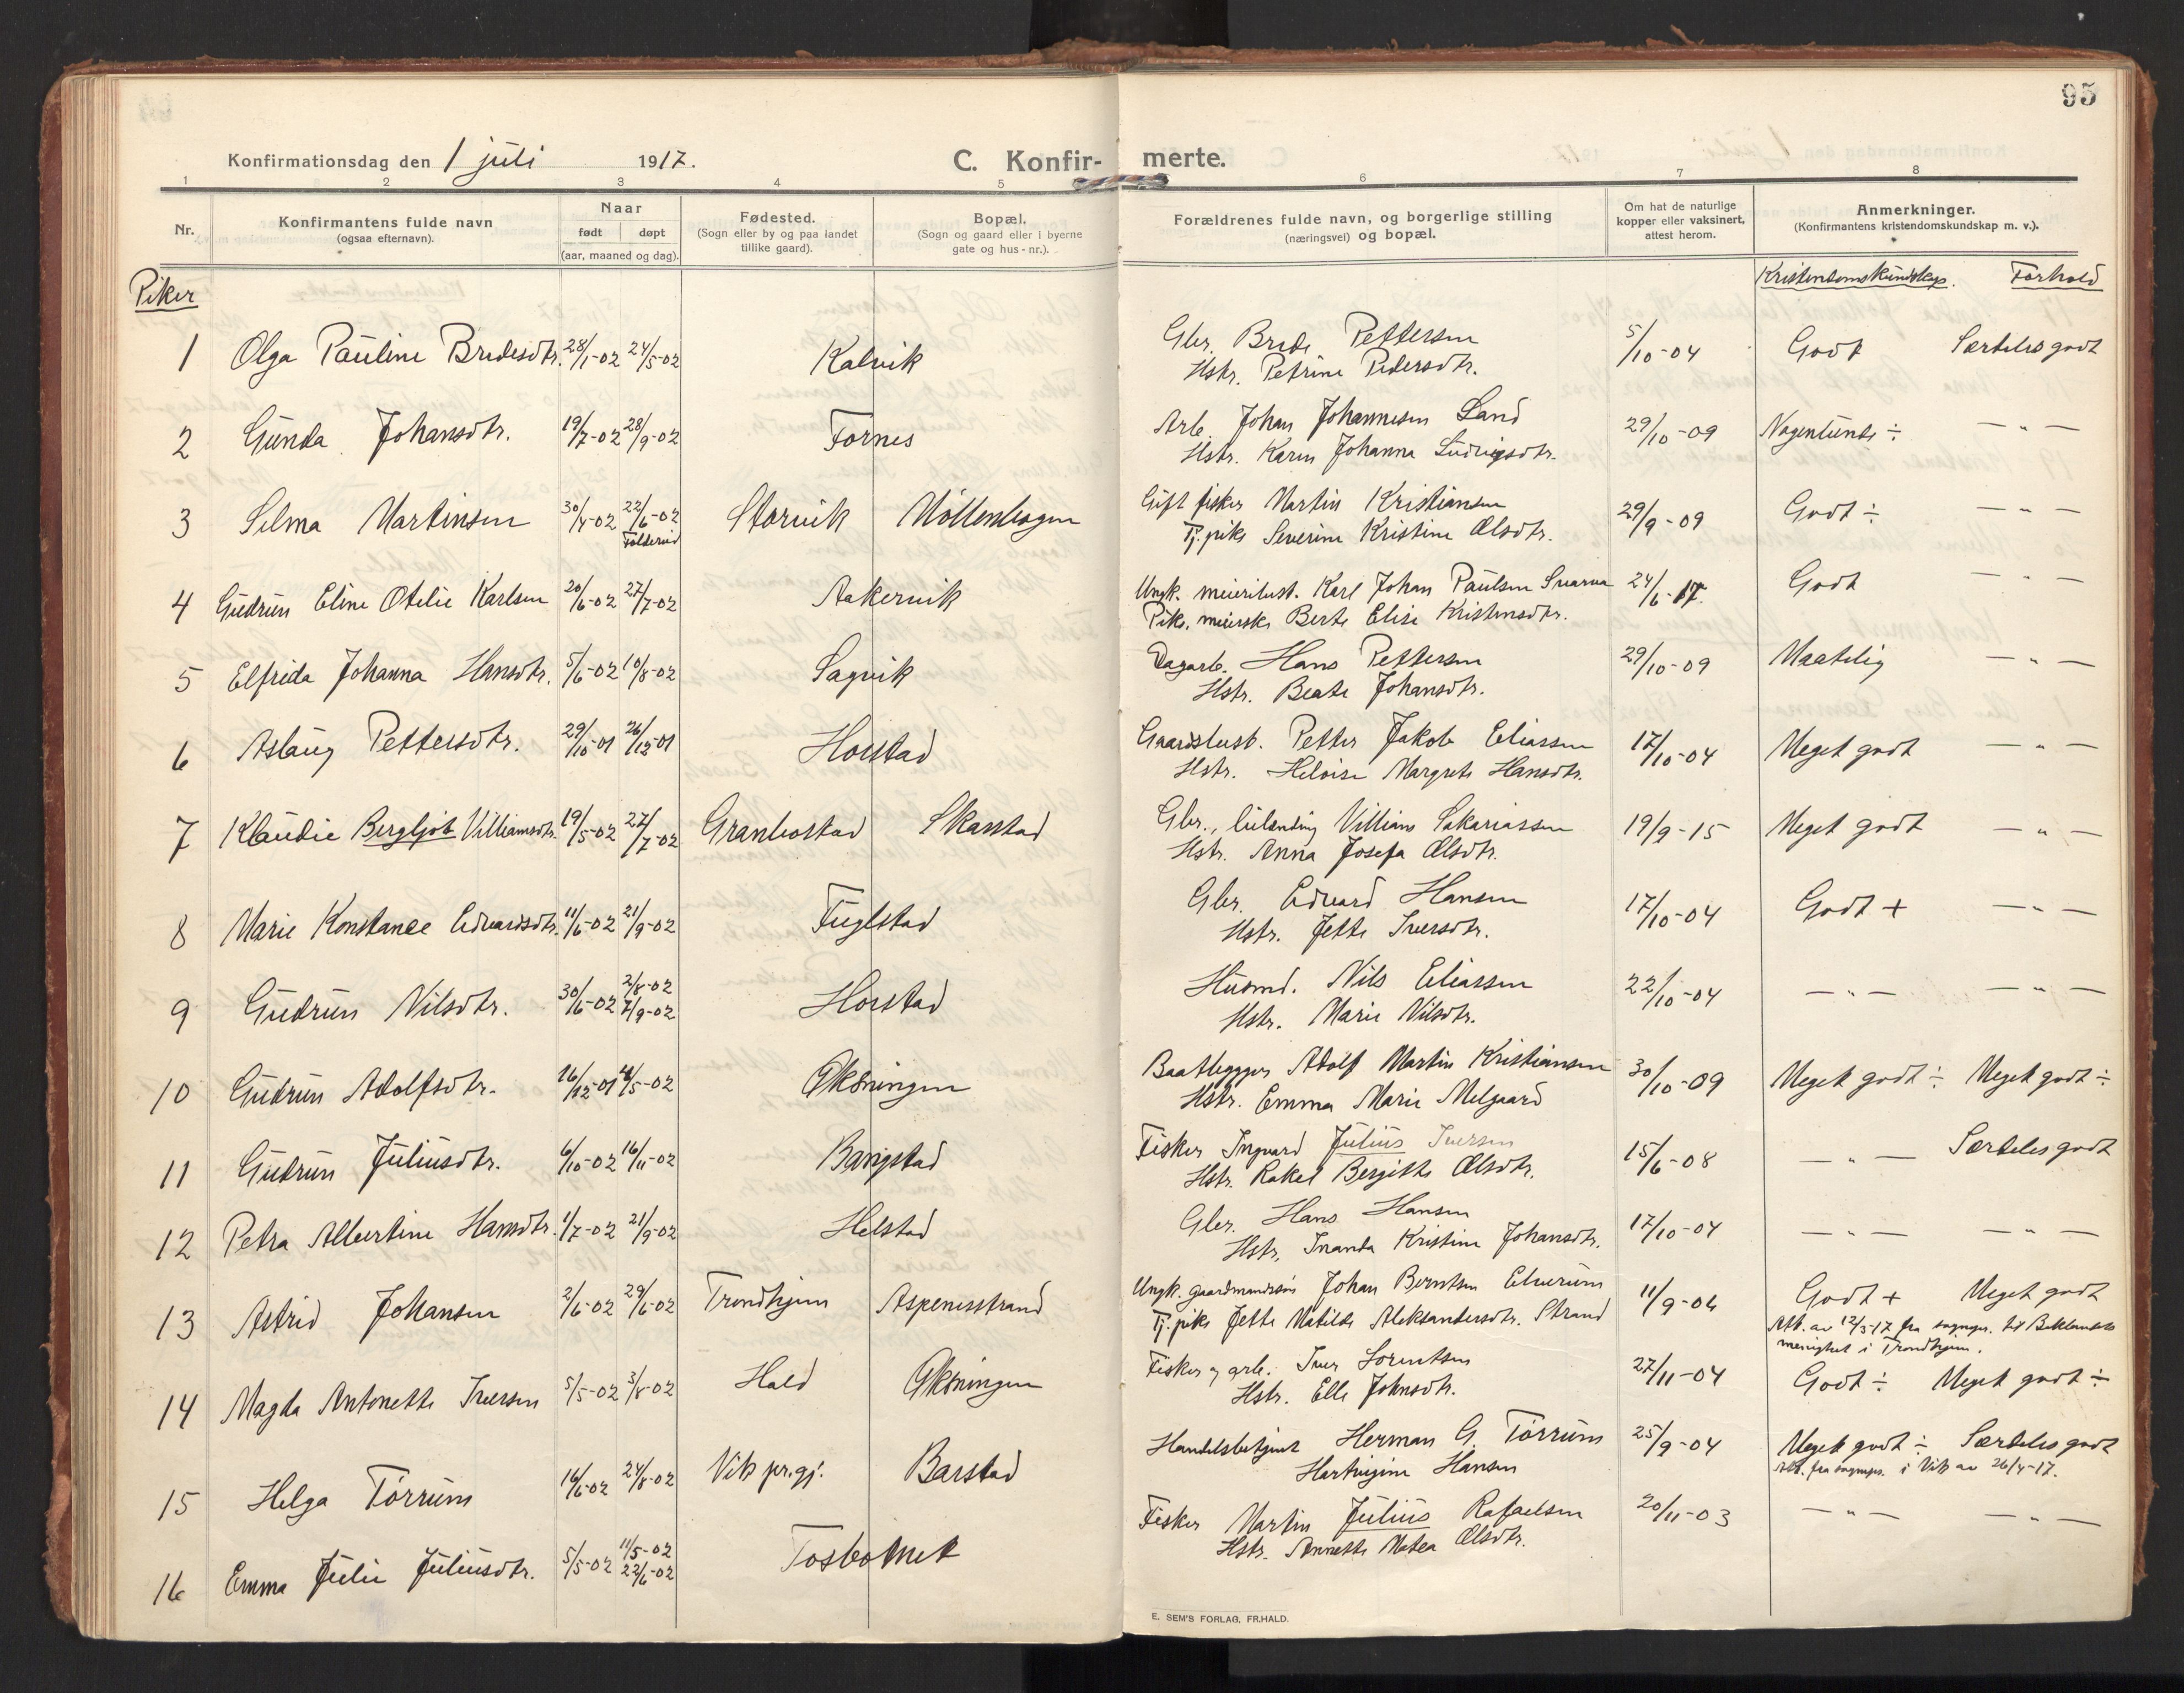 95
Konfirmationsdag den 1 juli 1917.
C. Konfir- merte.
1 2 3 4 5 6 7 8
Nr.
Konfirmantens fulde navn
(ogsaa efternavn).
Naar
født døpt
(aar, maaned og dag).
Fødested.
(Sogn eller by og paa landet
tillike gaard).
Bopæl.
(Sogn og gaard eller i byerne
gate og hus-nr.).
Forældrenes fulde navn, og borgerlige stilling
(næringsvei) og bopæl.
Om hat de naturlige
kopper eller vaksinert,
attest herom.
Anmerkninger.
(Konfirmantens kristendomskundskap m. v.).
Piker
Kristendomskundskap. Forhold
1 Olga Pauline Bredesdtr. 28/1-02 24/5-02 Kalvik Gbr. Brede Pettersen 5/10-04 Godt Særdeles godt
Hstr. Petrine Pedersdtr.
2 Gunda Johansdtr. 19/7-02 28/9-02 Fornes Arb. Johan Johannesen Sand 29/10-09 Nogenlunde ÷ — " —
Hstr. Karen Johanna Ludvigsdtr.
3 Selma Martinsen 30/4-02 22/6-02 Storvik Möllenhagen Gift fisker Martin Kristiansen 29/9-09 Godt ÷ — " —
Foldereid
Tj. pike Severine Kristine Olsdtr.
4 Gudrun Eline Otelie Karlsen 20/6-02 27/7-02 Aakervik Ungk. meieribest. Karl Johan Paulsen Svarva 24/6-17. Godt — " —
Pike, meierske Berte Elise Kristensdtr.
5 Elfrida Johanna Hansdtr. 5/6-02 10/8-02 Sagvik Dagarb. Hans Pettersen 29/10-09 Maatelig — " —
Hstr. Beate Johansdtr.
6 Aslaug Pettersdtr. 29/10-01 26/12-01 Horstad Gaardsbest. Petter Jakob Eliassen 17/10-04 Meget godt — " —
Hstr. Heloise Margrete Hansdtr.
7 Klaudie Bergljot Villiamsdtr. 19/5-02 27/7-02 Granbostad Skarstad Gbr., Villiam Sakariassen 19/9-15 Meget godt — " —
Hstr. Anna Josefa Olsdtr.
8 Marie Konstance Edvardsdtr. 11/6-02 21/9-02 Fuglstad Gbr. Edvard Hansen 17/10-04 Godt + — " —
Hstr. Jette Iversdtr.
9 Gudrun Nilsdtr. 30/6-02 2/8-02 7/9-02 Horstad Husmd. Nils Eliassen 22/10-04 — " — — " —
Hstr. Marie Nilsdtr.
10 Gudrun Adolfsdtr. 16/12-01 4/5-02 Øksningen Baatbygger Adolf Martin Kristiansen 30/10-09 Meget godt ÷ Meget godt ÷
Hstr. Emma Marie Melgaard
11 Gudrun Juliusdtr. 6/10-02 16/11-02 Bangstad Fisker Ingvard Julius Iversen 15/6-08 — " — Særdeles godt
Hstr. Rakel Bergitte Olsdtr.
12 Petra Albertine Hansdtr. 1/7-02 21/9-02 Helstad Gbr. Hans Hansen 17/10-04 — " — — " —
Hstr. Inanda Kristine Johansdtr.
13 Astrid Johansen 2/6-02 29/6-02 Trondhjem Aspenesstrand Ungk. gaardmandssøn Johan Berntsen Elverum 11/9-06 Godt + Meget godt
Tj. pike Jette Matilde Aleksandersdtr. Strand
Att. av 12/3-17 fra sogнepr. til Baklandets
menighet i Trondhjem.
14 Magda Antonette Iversen 5/5-02 3/8-02 Hald Øksningen Fisker og arb. Iver Lorentsen 27/11-04 Godt ÷ Meget godt ÷
Hstr. Elle Johnsdtr.
15 Helga Tørrum 16/6-02 24/8-02 Vik pr.gj. Barstad Handelsbetjent Herman G. Tørrum 25/9-04 Meget godt ÷ Særdeles godt
Hartvigine Hansen
Att. fra sognepr. i Vik av 26/4-17.
16 Emma Julie Juliusdtr. 5/5-02 11/5-02 22/6-02 Tosbotnet Fisker Martin Julius Rafaelsen 20/11-03 — " — — " —
Hstr. Annette Matea Olsdtr.
E. SEM'S FORLAG, FR.HALD.